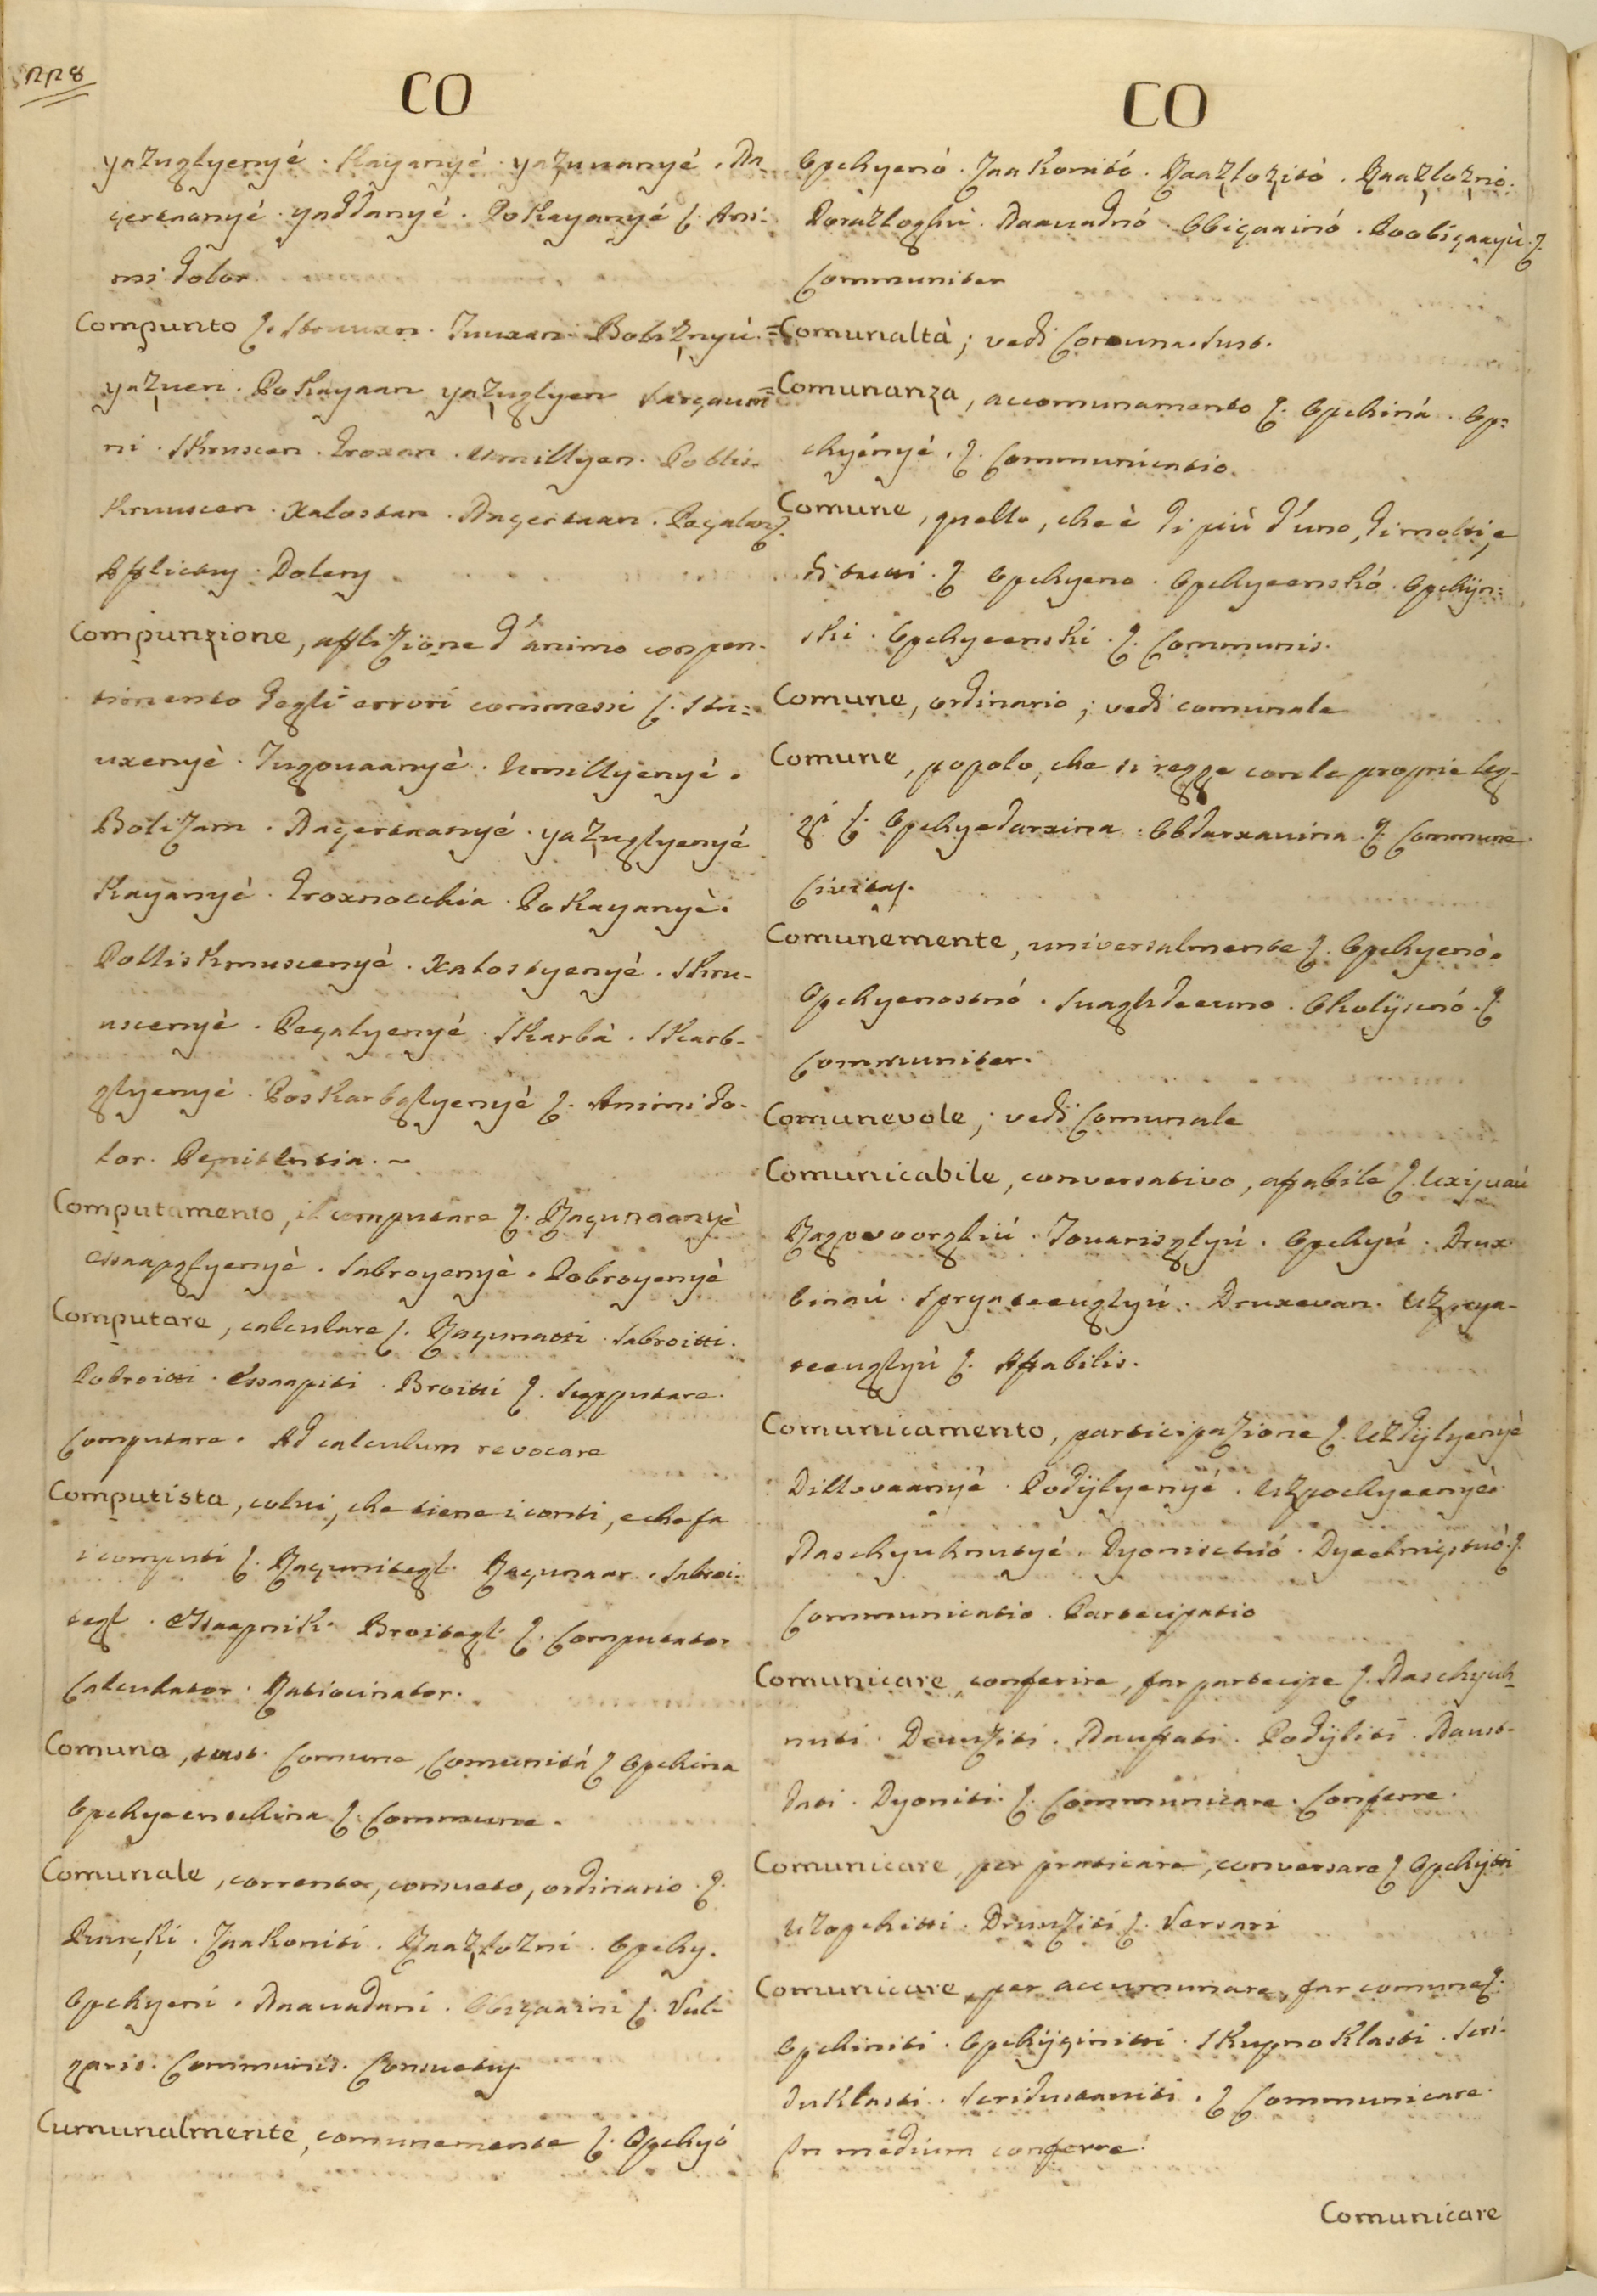 CO
yazuglyenyé . Kayanyé . yazuuanyé . Na-
çertaanyé . yaddanyé . Pokayanyé ʃ. Ani-
mi dolor
Compunto
yazuen . Pokayaan yazuglyen
ni . Skruscen . Troxan . Umillyen . Potlis-
kruuscen . Xalostan . Naçertaan . Peçalan ʃ.
Afflictus . Dolens
Compunzione, afflizione d'animo con pen-
timento degli errori commessi ʃ. Stu=
uxenyè . Tugouaanyé . Umillyényé .
Bolizam . Naçertaanyé . yazuglyenyé
Kayanyé . Troxnocchia . Pokayanyé .
Potliskruuscenyé . Xalostyenyé . Skru-
uscenyé . Peçalyenyé . Skarbà . Skarb-
glyenyé . Poskarbglyenyé ʃ. Animi do-
lor . Penitentia .
Computamento, il computare ʃ. Raçunaanyé
Sctaapglyenyé . Sabroyenyé . Pobroyenyé
Computare, calculare ʃ. Raçunatti . Sabroitti .
Pobroitti . Sctaapiti . Broitti ʃ. Supputare .
Computare . Ad calculum revocare
Computista, colui, che tiene i conti, e che fa
i computi ʃ. Raçunitegl . Raçunaar . Sabroi-
tegl . Sctaapnik . Broitegl . ʃ. Computator
Calculator . Ratiocinator .
Comuna, sust. Comune, Comunità ʃ. Opchina
Opchyeenschina ʃ. Commune .
Comunale, corrente, consueto, ordinario . ʃ.
Ruucki . Zaakoniti . Raazlozni . Opchy .
Opchyeni . Naauadni . Obiçaaini ʃ. Vul-
garis . Communis . Consuetus
Cumunalmente, comunemente ʃ. Opchyó
CO
Opchyenó . Zaakonitó . Raazlozitó . Raazloznó .
Porazloghù . Naauadnó . Obiçaainó . Poobiçaayù . ʃ.
Communiter
Comunaltà ; vedi Comuna . sust .
Comunanza, accomunamento ʃ. Opchinà . Op=
chyényé . ʃ. Communicatio .
Comune, quello, che è di più d'uno, di molti, e
di tutti . ʃ. Opchyeno . Opchyeenskó . Opchÿn=
ski . Opchyeenski . ʃ. Communis .
Comune, ordinario ; vedi comunale
Comune, popolo, che si regge con le proprie leg-
gi ʃ. Opchyedarxina . Obdarxauina . ʃ. Commune
Civitas .
Comunemente, universalmente ʃ. Opchyenò .
Opchyenostnó . Suaghdeeuno . Okolÿscnó . ʃ.
Communiter .
Comunevole ; vedi Comunale
Comunicabile, conversativo, affabile ʃ. Uxiyuaú
Razgovoorgliú . Touarisglyú . Opchyú . Drux-
binaú . Spryateeuglyú . Druxevan . Uzprya-
teeuglyú ʃ. Affabilis .
Comunicamento, participazione ʃ. Uzdÿlyenyè
Dillovaanyé . Podÿlyenyé . Uzpochyeenyé .
Naschyuknutyé . Dyonisctuó . Dyeelnigstuó . ʃ.
Communicatio . Partecipatio
Comunicare, conferire, far partecipe ʃ. Naschyuk-
nuti . Druuziti . Nauffati . Podÿliti . Naust-
dati . Dyoniti . ʃ. Communicare . Conferre .
Comunicare, per praticare, conversare ʃ. Opchÿtti
Uzopchitti . Druuziti ʃ. Versari
Comunicare, per accumunare, far comune ʃ.
Opchiniti . Opchÿçinitti . Skupno klasti . Sri-
duklasti . Sridustauiti . ʃ. Communicare .
In medium conferre .
Comunicare